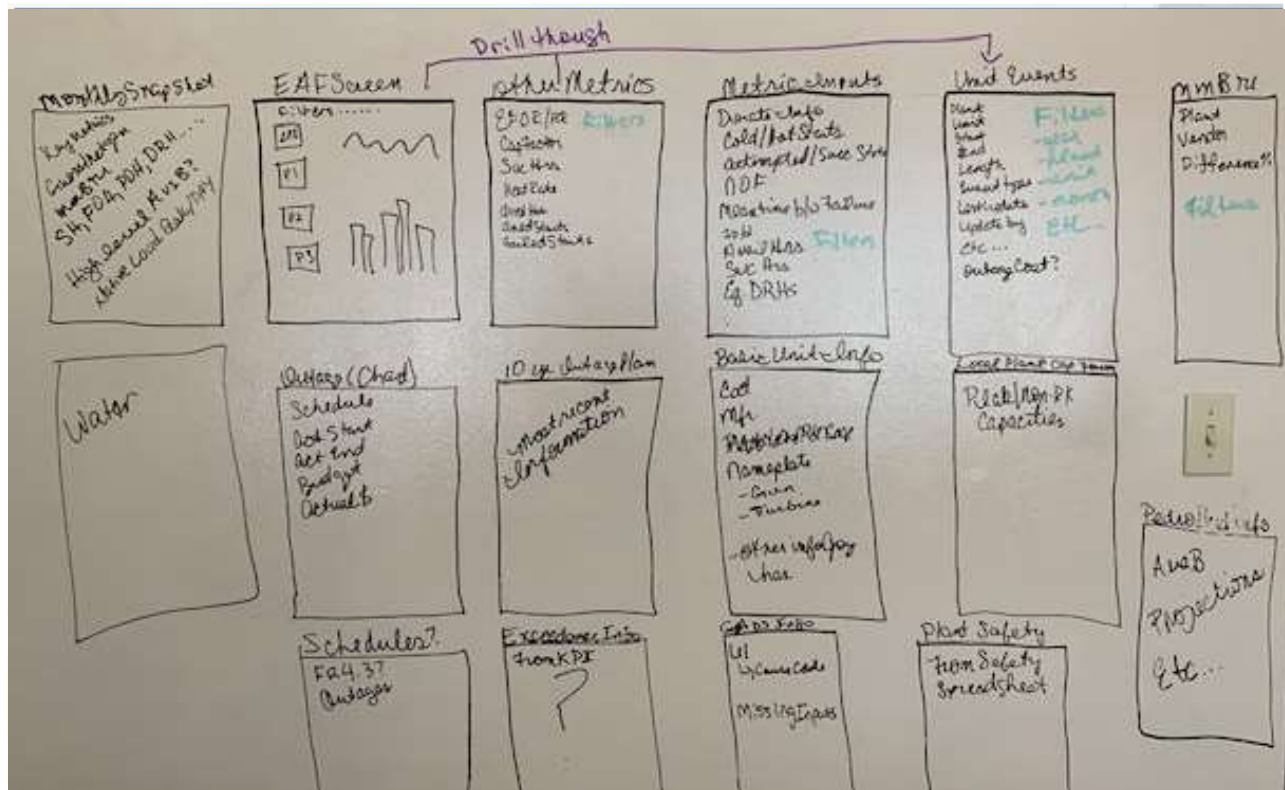 Drill though
Monthly Snapshot
Key Metrics
mmBTU
SH, FOH, POH, DRH ....
High level AvsB?
Native Load
EAF Screen
Filters ......
P1
P2
P3
Other Metrics
Filters
Cap Factor
Svc Hrs
Heat Rate
Failed Starts
Metric Inputs
Derate Info
Cold/Hot Starts
Attempted/Succ Starts
Meantime b/w Failure
Avail Hrs
Filters
Svc Hrs
Eq. DRHs
Unit Events
Plant
Unit
Start
End
Length
Event type
Last update
Update by
Etc ...
Outage Cost?
Filters
-year
-plant
-unit
-month
Etc...
mmBTU
Plant
Vendor
Difference %
Filters
Water
Outage (Chad)
Schedule
Act Start
Act End
Budget
Actual $
10 yr Outage Plan
-most recent
Information
Basic Unit Info
Cod
Mfr
Nameplate
-Gen
-Turbine
-other info for
Peak/Non-PK
Capacities
AvsB
Projections
Etc...
Schedules?
Outages
Exceedance Info
From KPI
?
GADS Info
U1
↳ Cause Code
Missing Inputs
Plant Safety
From Safety
Spreadsheet